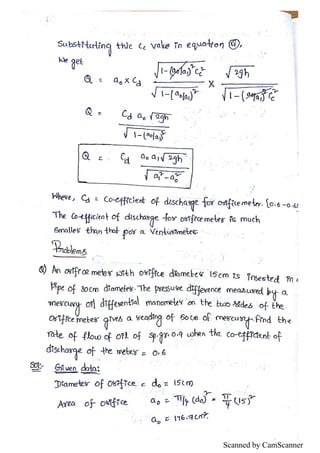 Substituting this Cc value in equation (a),
We get
Q = a₀ × Cd √1-(a₀/a₁)² Cc² / √1-(a₀/a₁)² × √2gh / √1-(a₀/a₁)² Cc²
Q = Cd a₀ √2gh / √1-(a₀/a₁)²
Q = Cd a₀ a₁ √2gh / √a₁²-a₀²
Where, Cd = Co-efficient of discharge for orificemeter. [0.6-0.6
The Co-efficient of discharge for orificemeter is much
Smaller than that for a Venturimeter.
Problems
Q) An orifice meter with orifice diameter 15cm is inserted in a
Pipe of 30cm diameter. The pressure difference measured by a
mercury oil differential manometer on the two sides of the
Orifice meter gives a reading of 50cm of mercury. Find the
rate of flow of oil of sp.gr. 0.9 when the co-efficient of
discharge of the meter = 0.6
Sol:- Given data:
Diameter of orifice = d₀ = 15cm
Area of orifice a₀ = π/4 (d₀)² = π/4 (15)²
a₀ = 176.7cm².
Scanned by CamScanner